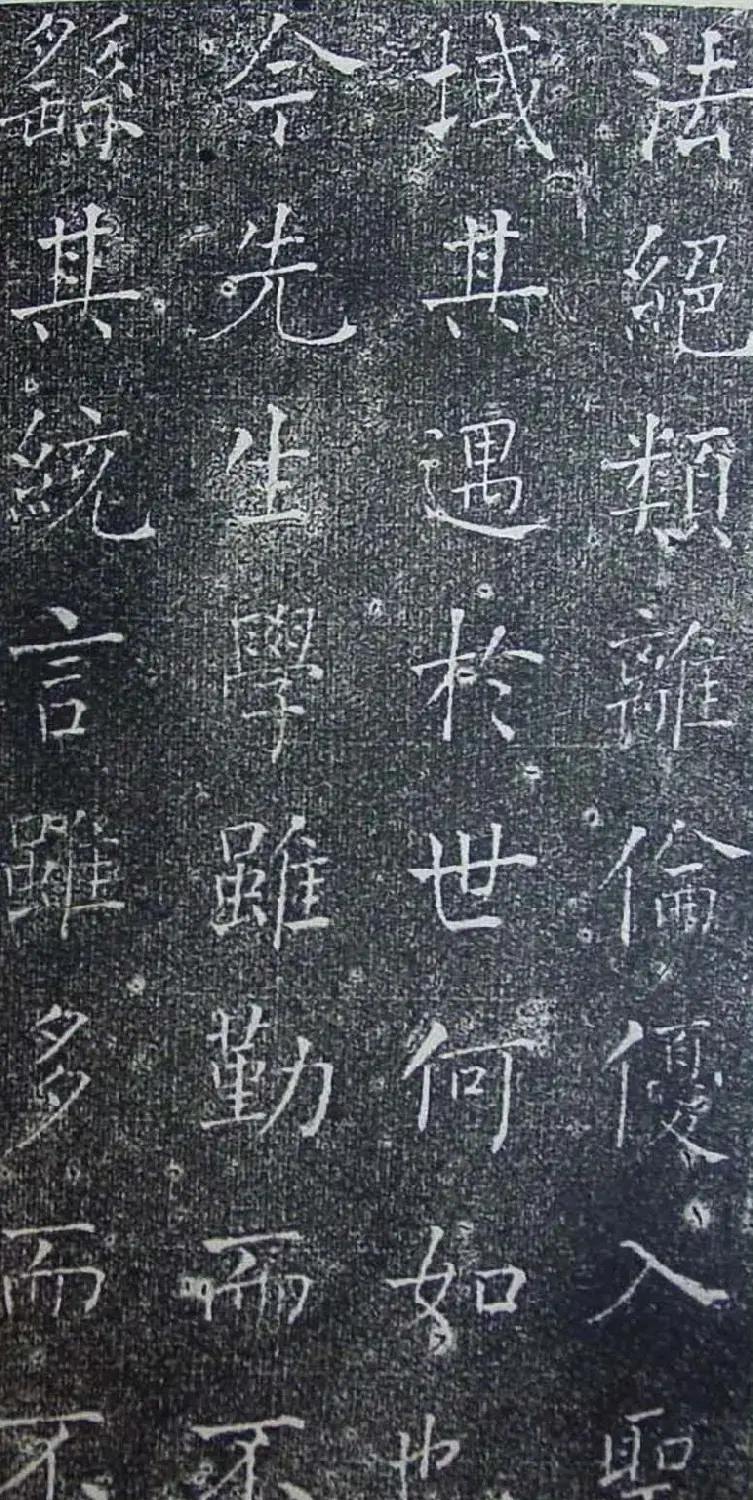 法絕類離倫優入聖
域其遇於世何如也
今先生學雖勤而不
繇其統言雖多而不